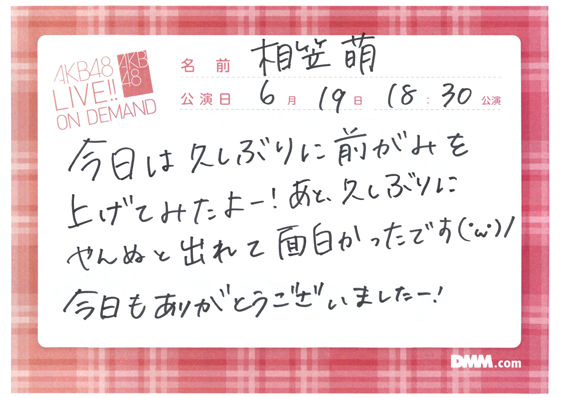 AKB48
LIVE!!
ON DEMAND
AKB
48
名前 相笠萌
公演日 6月19日 18:30公演
今日は久しぶりに前がみを
上げてみたよー!あと、久しぶりに
やんぬと出れて面白かったです(・ω・)/
今日もありがとうございましたー!
DMM.com